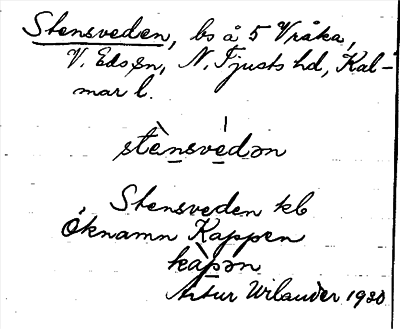 Stensveden, bs å 5 Vråka,
V. Eds sn, N. Tjusts hd, Kal-
mar l.
stènsvédən
Stensveden kb
Öknamn Kappen
kàpən
Artur Wilander 1930